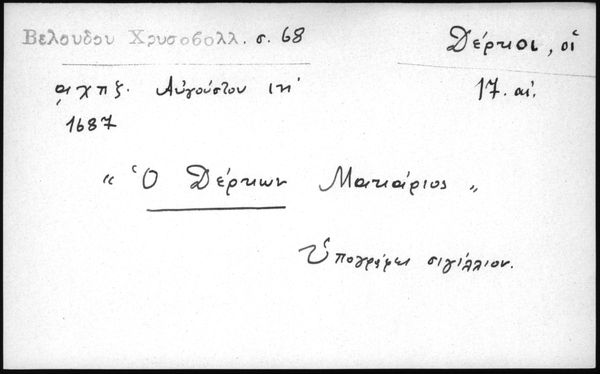 Βελουδου Χρυσοβολλ. σ. 68
Δέρκοι, οἱ
͵αχπζ. Αὐγούστου ιη'
17. αἰ.
1687
“ Ὁ Δέρκων Μακάριος „
Ὑπογράφει σιγίλλιον.